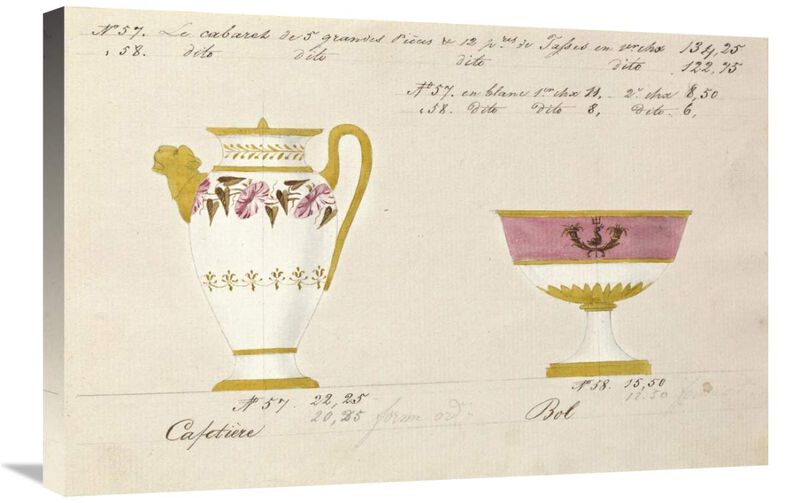 N° 57. Le cabaret de 5 grandes Pièces & 12 p.res de Tasses en 1.er chx 134,25
" 58. dito dito dito dito 122,75
N° 57. en blanc 1.er chx 11, - 2.e chx 8,50
" 58. dito dito 8, dito 6,
N° 57. 22,25
20,25 form ord.
Cafetière
N° 58. 15,50
12.50
Bol